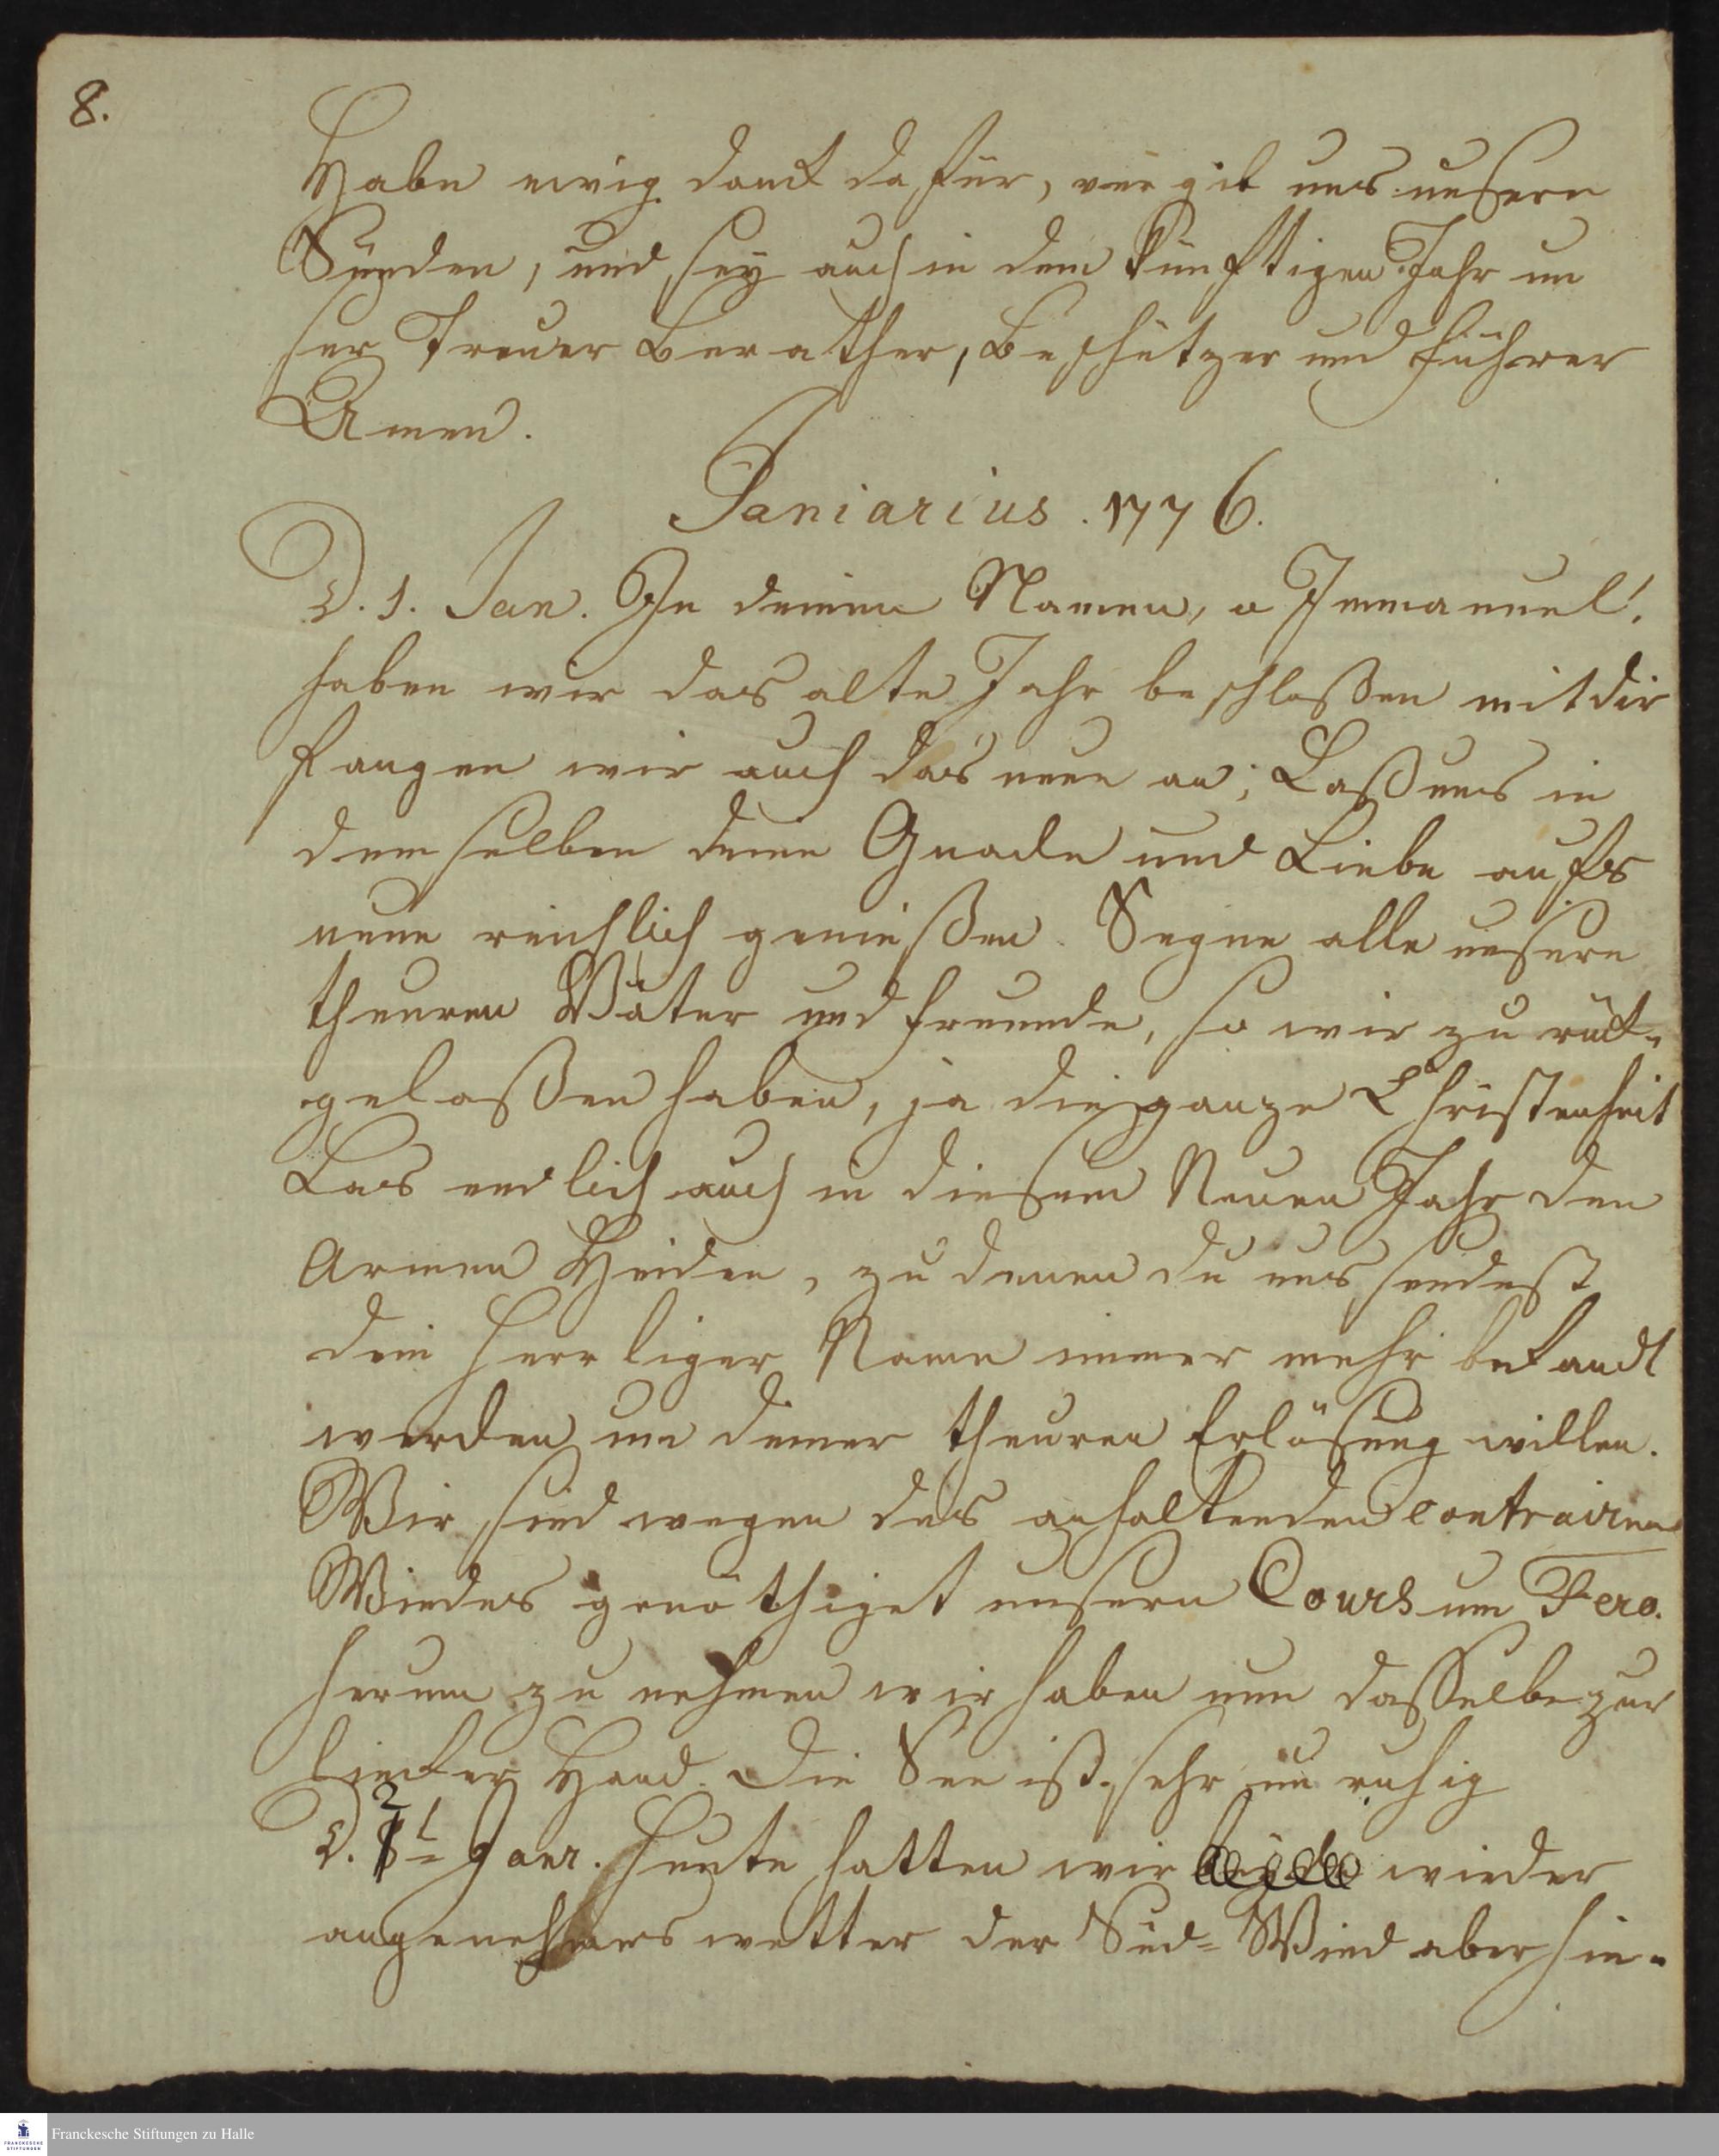 8.
Habe ewig danck dafür, vergib uns unsere
Sünden, und sey auch in dem künftigen Jahr un
ser Treuer Berather, Beschützer und führer
Amen.
Janiarius. 1776.
D. 1. Jan. In deinem Namen, o Immanuel!
haben wir das alte Jahr beschloßen mit dir
fangen wir auch das neue an; Laß uns in
demselben deine Gnade und Liebe aufs
neue reichlich genießen. Segne alle unsere
theuren Väter und freunde, so wir zu rück-
gelaßen haben, ja die ganze Christenheit
Las endlich auch in diesem Neuen Jahr den
Armen Heiden, zu denen du uns sendest
dein herrliger Name immer mehr bekandt
werden um deiner theuren Erlösung willen.
Wir sind wegen des anhaltenden contrairen
Windes genöthiget unsern Cours um Fero.
herum zu nehmen wir haben nun dasselbe zur
lincker Hand. Die See ist sehr un ruhig
D. 2t Janr. heute hatten wir wieder
angenehmes wetter der Süd-Wind aber hin-
Franckesche Stiftungen zu Halle